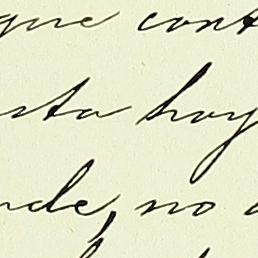 que cont
sta hoy
nde, no